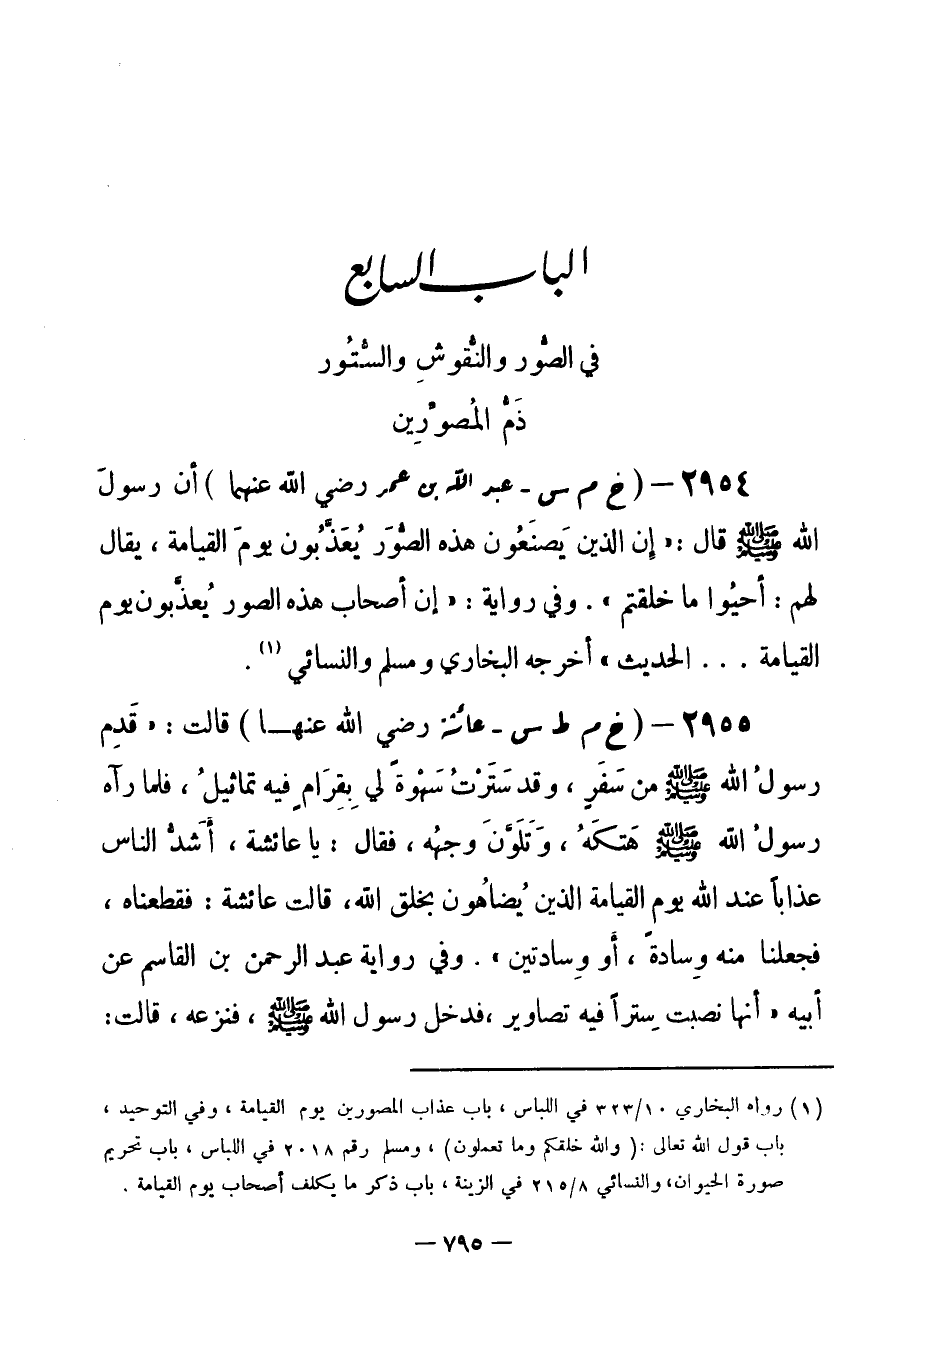 الباب السابع
في الصُّور والنُّقوشِ والسُّتُور
ذَمُّ المُصوِّرِين
٢٩٥٤ - ( خ م س - عبد الله بن عمر رضي الله عنهما ) أن رسولَ
الله ﷺ قال : « إن الذين يَصنَعُون هذه الصُّوَرَ يُعَذَّبُون يومَ القيامة ، يقال
لهم : أحيُوا ما خلقتم » . وفي رواية : « إن أصحاب هذه الصور يُعذَّبون يوم
القيامة . . . الحديث » أخرجه البخاري ومسلم والنسائي (١) .
٢٩٥٥ - ( خ م ط س - عائشة رضي الله عنهـا ) قالت : « قَدِم
رسولُ الله ﷺ من سَفَرٍ ، وقد سَتَرْتُ سَهْوةً لي بِقِرَامٍ فيه تماثيلُ ، فلما رآه
رسولُ الله ﷺ هَتَكَهُ ، وَتَلَوَّنَ وجهُه ، فقال : يا عائشة ، أشدُّ الناس
عذاباً عند الله يوم القيامة الذين يُضاهُون بخلق الله، قالت عائشة : فقطعناه ،
فجعلنا منه وِسادةً ، أو وِسادتين » . وفي رواية عبد الرحمن بن القاسم عن
أبيه « أنها نصبت سِتراً فيه تصاوير ،فدخل رسول الله ﷺ ، فنزعه ، قالت:
(١) رواه البخاري ٣٢٣/١٠ في اللباس ، باب عذاب المصورين يوم القيامة ، وفي التوحيد ،
باب قول الله تعالى :( والله خلقكم وما تعملون) ، ومسلم رقم ٢٠١٨ في اللباس ، باب تحريم
صورة الحيوان، والنسائي ٢١٥/٨ في الزينة ، باب ذكر ما يكلف أصحاب يوم القيامة .
- ٧٩٥ -